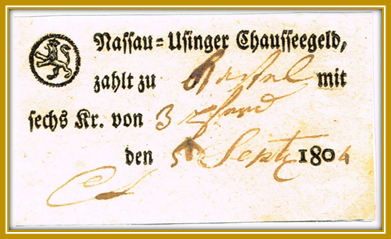 Nassau=Usinger Chausseegeld,
zahlt zu Castel mit
sechs Kr. von 3 Pferd
den 5 Septr 1804